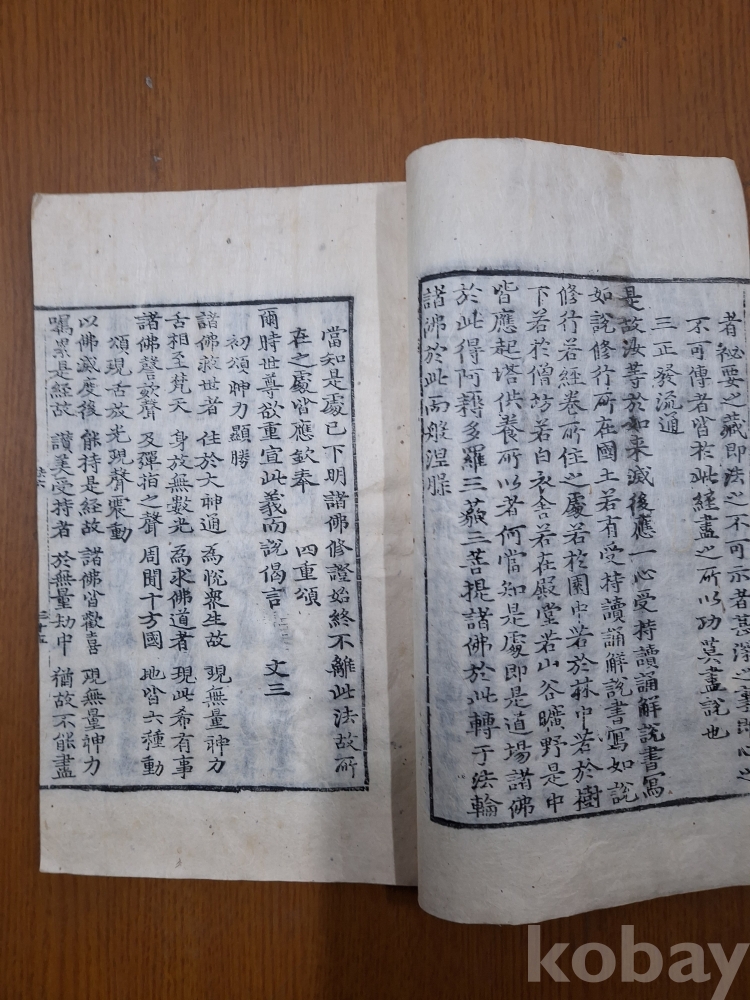 者祕要之藏即法之不可示者甚深之事即心之
不可傳者皆於此經盡之所以功莫盡說也
三正發流通
是故汝等於如来滅後應一心受持讀誦解說書寫
如說修行所在國土若有受持讀誦解說書寫如說
修行若經卷所住之處若於園中若於林中若於樹
下若於僧坊若白衣舍若在殿堂若山谷曠野是中
皆應起塔供養所以者何當知是處即是道場諸佛
於此得阿耨多羅三藐三菩提諸佛於此轉于法輪
諸佛於此而般涅槃
當知是處已下明諸佛修證始終不離此法故所
在之處皆應欽奉 四重頌
爾時世尊欲重宣此義而說偈言 文三
初頌神力顯勝
諸佛救世者 住於大神通 為悅衆生故 現無量神力
舌相至梵天 身放無數光 為求佛道者 現此希有事
諸佛謦欬聲 及彈指之聲 周聞十方國 地皆六種動
頌現舌放光現聲震動
以佛滅度後 能持是經故 諸佛皆歡喜 現無量神力
囑累是經故 讚美受持者 於無量劫中 猶故不能盡
kobay